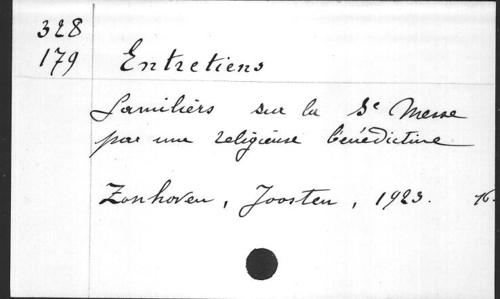 328
179
Entretiens
familiers sur la Ste Messe
par une religieuse bénédictine
Zonhoven, Joosten, 1923. 16.